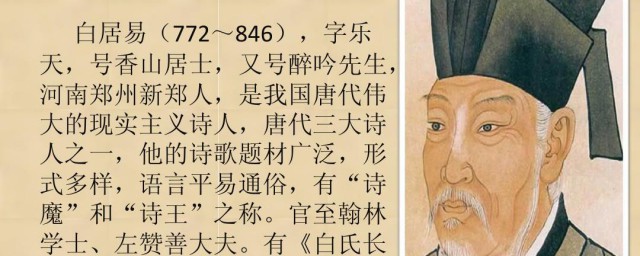 白居易（772～846），字乐
天，号香山居士，又号醉吟先生，
河南郑州新郑人，是我国唐代伟
大的现实主义诗人，唐代三大诗
人之一，他的诗歌题材广泛，形
式多样，语言平易通俗，有“诗
魔”和“诗王”之称。官至翰林
学士、左赞善大夫。有《白氏长